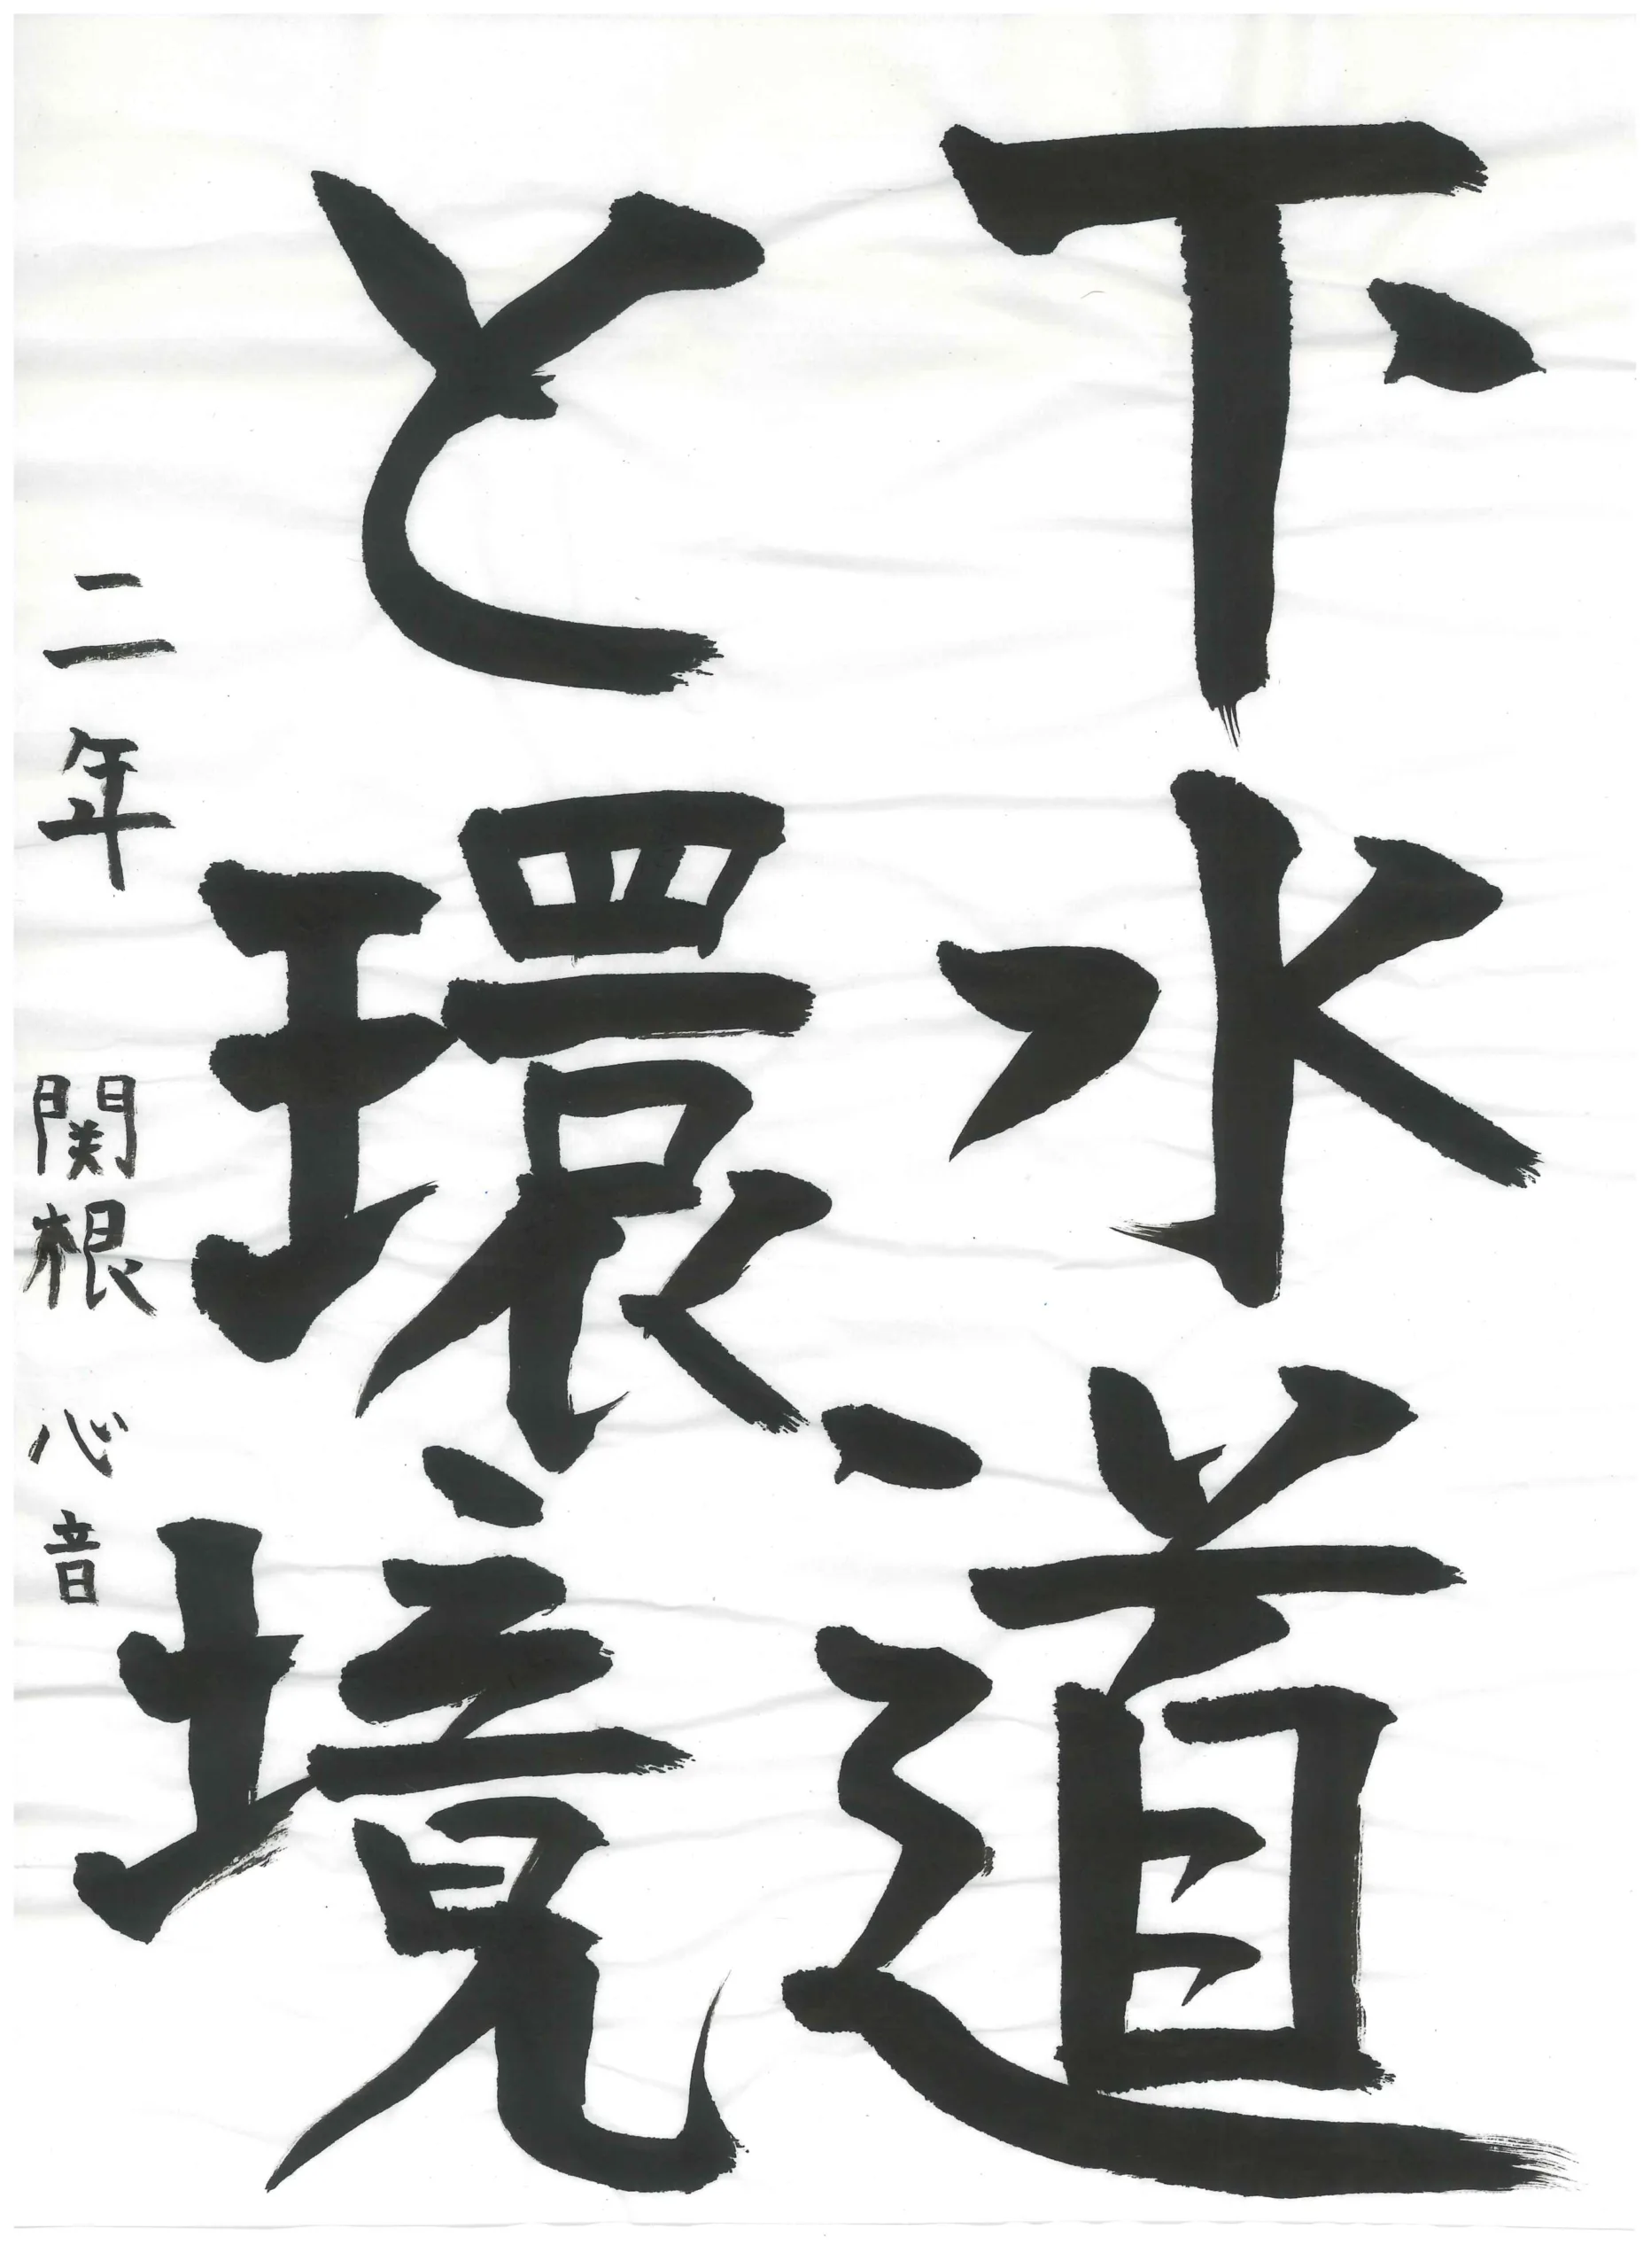 下水道
と環境
二年 関根 心音